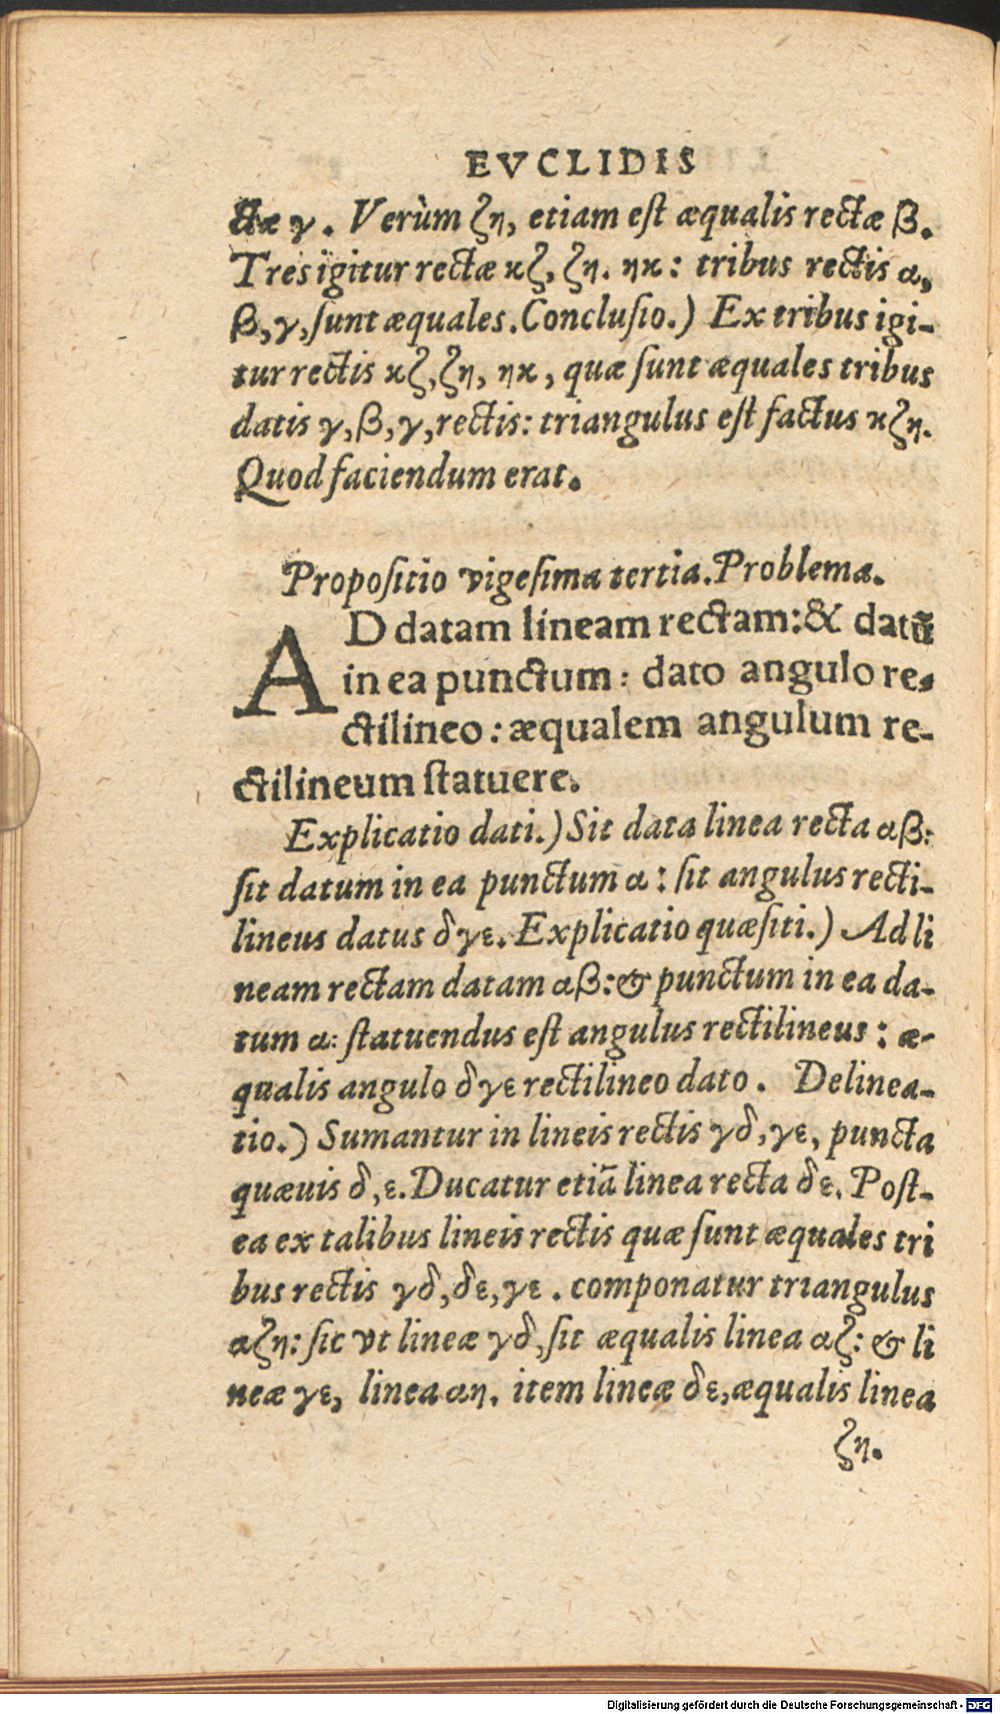 EVCLIDIS
ctæ γ. Verùm ζη, etiam est æqualis rectæ β.
Tres igitur rectæ κζ, ζη. ηκ: tribus rectis α,
β, γ, sunt æquales. Conclusio.) Ex tribus igi-
tur rectis κζ, ζη, ηκ, quæ sunt æquales tribus
datis γ, β, γ, rectis: triangulus est factus κζη.
Quod faciendum erat.
Propositio vigesima tertia. Problema.
AD datam lineam rectam: & datũ
in ea punctum: dato angulo re-
ctilineo: æqualem angulum re-
ctilineum statuere.
Explicatio dati.) Sit data linea recta αβ:
sit datum in ea punctum α: sit angulus recti-
lineus datus δγε. Explicatio quæsiti.) Ad li
neam rectam datam αβ: & punctum in ea da-
tum α: statuendus est angulus rectilineus: æ-
qualis angulo δγε rectilineo dato. Delinea-
tio.) Sumantur in lineis rectis γδ, γε, puncta
quæuis δ, ε. Ducatur etiã linea recta δε. Post-
ea ex talibus lineis rectis quæ sunt æquales tri
bus rectis γδ, δε, γε. componatur triangulus
αζη: sic vt lineæ γδ, sit æqualis linea αζ: & li
neæ γε, linea αη. item lineæ δε, æqualis linea
ζη.
Digitalisierung gefördert durch die Deutsche Forschungsgemeinschaft - DFG